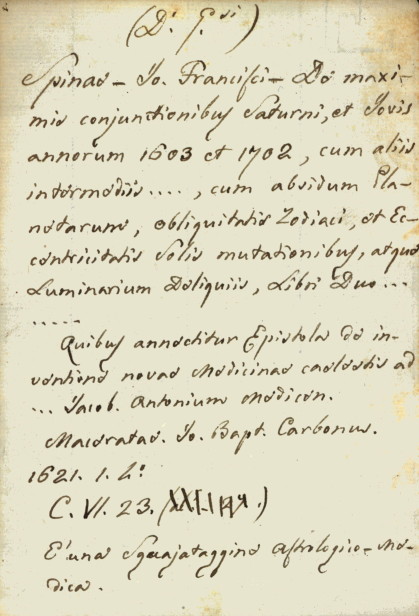 (D. G.si)
Spinae - Jo. Francisci - De maxi-
mis conjunctionibus Saturni, et Jovis
annorum 1603 et 1702, cum aliis
intermediis ...., cum absidum Pla-
netarum, obliquitatis Zodiaci, et Ec-
centricitatis Solis mutationibus, atque
Luminarium Deliquiis, Libri Duo ...
.....
Quibus annectitur Epistola de in-
ventione novae Medicinae caelestis ad
... Jacob. Antonium Medicen.
Maceratae. Jo. Bapt. Carbonus.
1621. 1. 4:
C. VI. 23.
E' una Squajataggine Astrologico-Me-
dica.